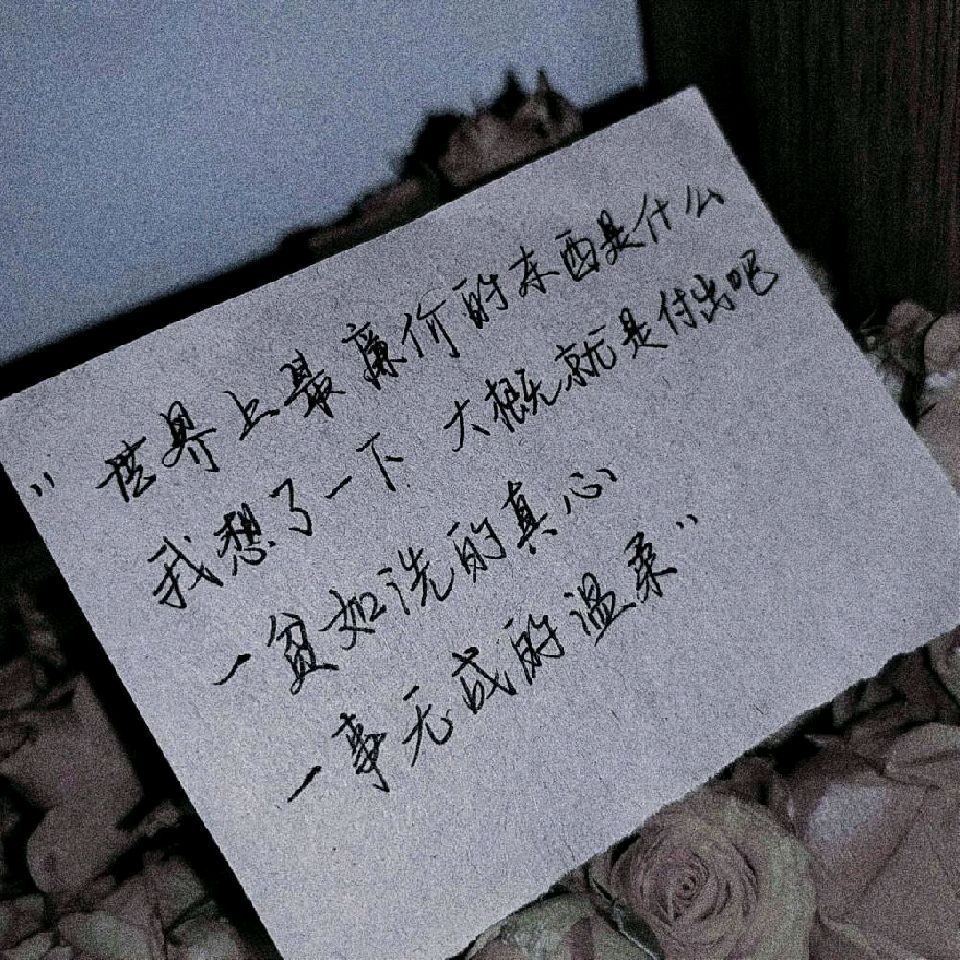 "世界上最廉价的东西是什么
我想了一下 大概就是付出吧
一贫如洗的真心
一事无成的温柔"